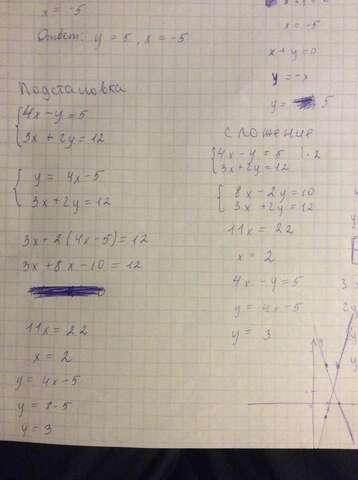 x = -5
Ответ: y = 5, x = -5
Подстановка
4x - y = 5
3x + 2y = 12
y = 4x - 5
3x + 2y = 12
3x + 2(4x - 5) = 12
3x + 8x - 10 = 12
11x = 22
x = 2
y = 4x - 5
y = 8 - 5
y = 3
x = -5
x + y = 0
y = -x
y = 5
сложение
4x - y = 5 | · 2
3x + 2y = 12
8x - 2y = 10
3x + 2y = 12
11x = 22
x = 2
4x - y = 5
y = 4x - 5
y = 3